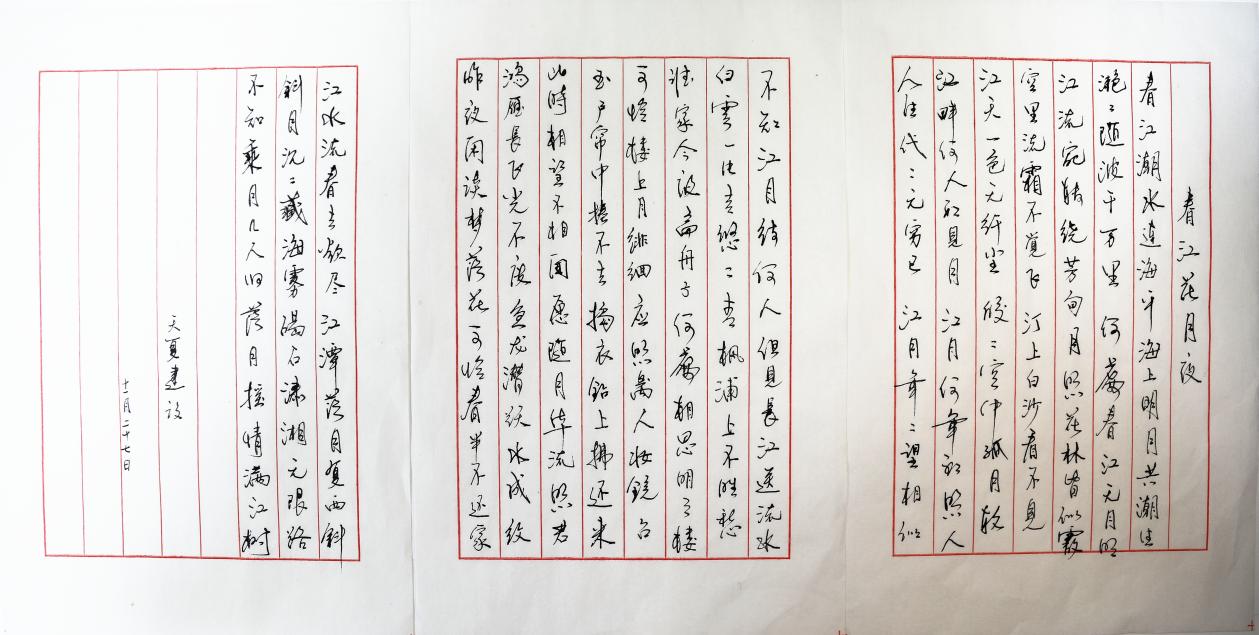 春江花月夜
春江潮水连海平海上明月共潮生
滟〻随波千万里何处春江无月明
江流宛转绕芳甸月照花林皆似霰
空里流霜不觉飞汀上白沙看不见
江天一色无纤尘皎〻空中孤月轮
江畔何人初见月江月何年初照人
人生代〻无穷已江月年〻望相似
不知江月待何人但见长江送流水
白云一片去悠〻青枫浦上不胜愁
谁家今夜扁舟子何处相思明月楼
可怜楼上月徘徊应照离人妆镜台
玉户帘中卷不去捣衣砧上拂还来
此时相望不相闻愿随月华流照君
鸿雁长飞光不度鱼龙潜跃水成纹
昨夜闲潭梦落花可怜春半不还家
江水流春去欲尽江潭落月复西斜
斜月沉〻藏海雾碣石潇湘无限路
不知乘月几人归落月摇情满江树
天夏建设
十一月二十七日